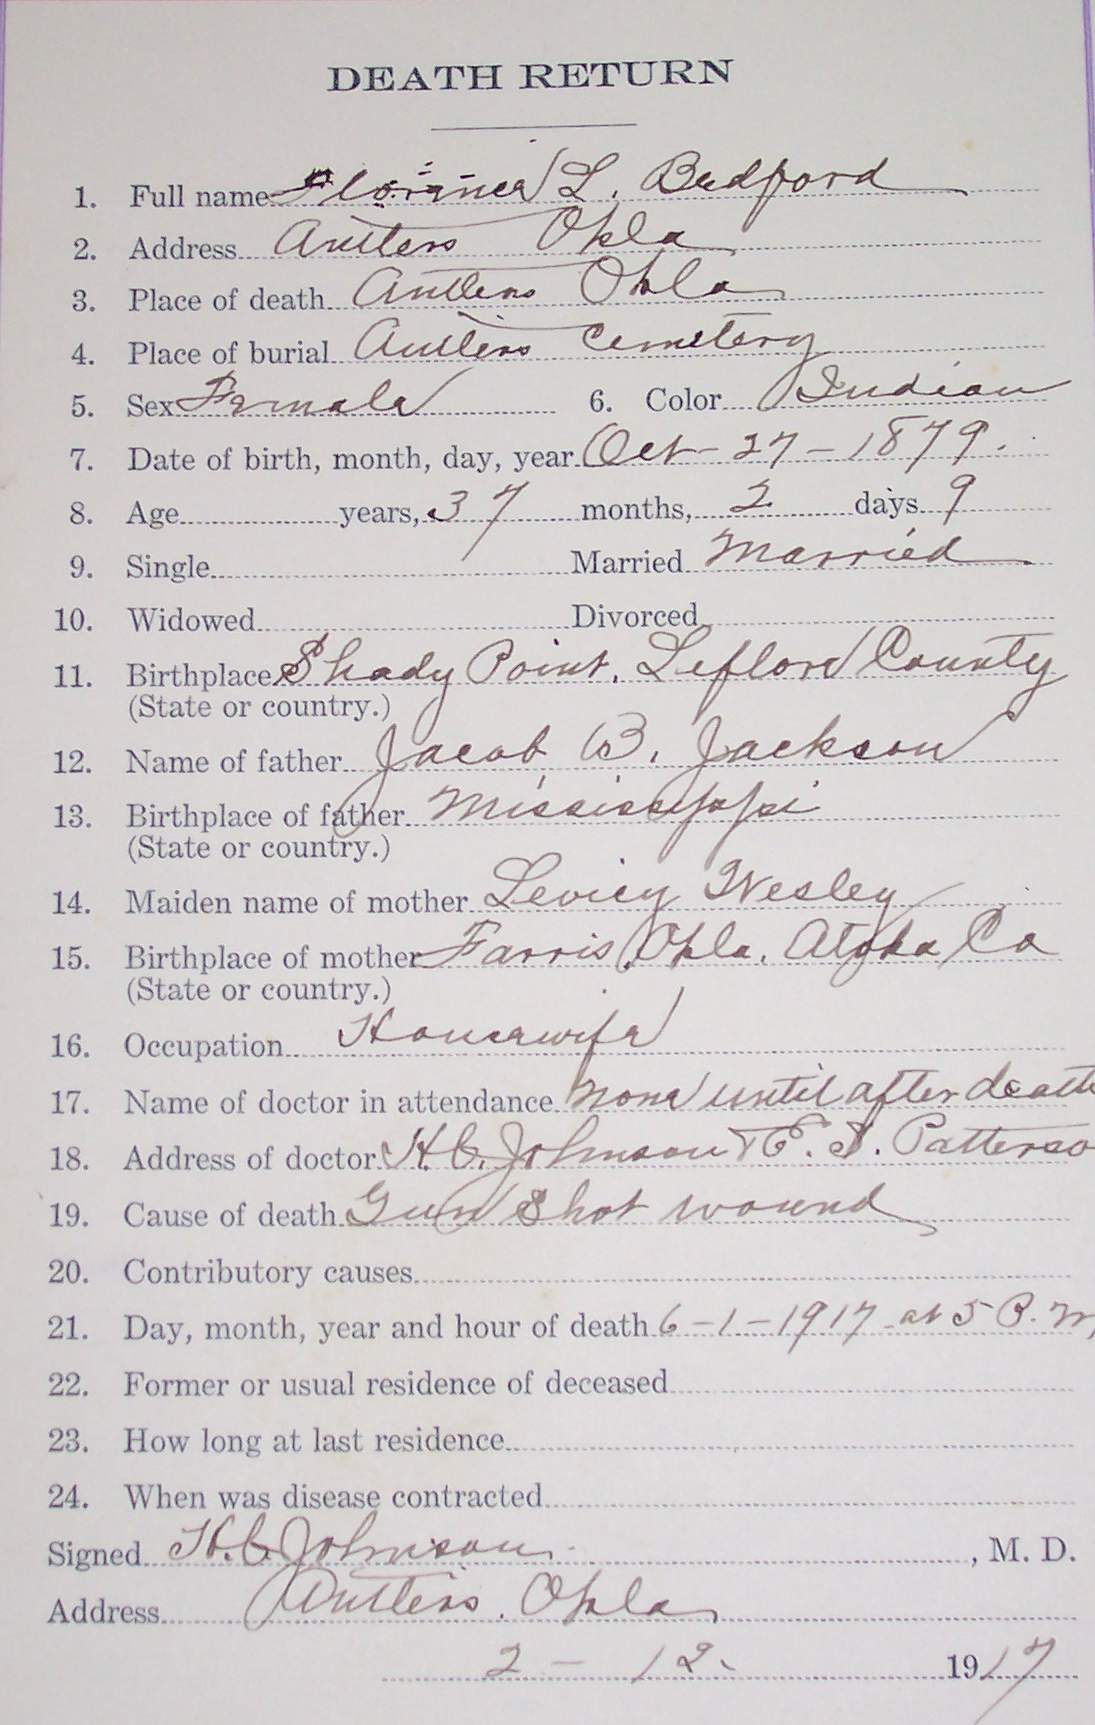 DEATH RETURN
1. Full name Florance L. Bedford
2. Address Antlers Okla
3. Place of death Antlers Okla
4. Place of burial Antlers Cemetery
5. Sex Female 6. Color Indian
7. Date of birth, month, day, year Oct - 27 - 1879.
8. Age years, 37 months, 2 days 9
9. Single Married Married
10. Widowed Divorced
11. Birthplace Shady Point, Leflore County
(State or country.)
12. Name of father Jacob B. Jackson
13. Birthplace of father Mississippi
(State or country.)
14. Maiden name of mother Levicy Wesley
15. Birthplace of mother Farris, Okla. Atoka Co
(State or country.)
16. Occupation Housewife
17. Name of doctor in attendance None until after death
18. Address of doctor H. C. Johnson & E. S. Patterso
19. Cause of death Gun Shot wound
20. Contributory causes
21. Day, month, year and hour of death 6-1-1917 at 5 P.M,
22. Former or usual residence of deceased
23. How long at last residence
24. When was disease contracted
Signed H. C. Johnson , M. D.
Address Antlers, Okla
2 - 12. 1917